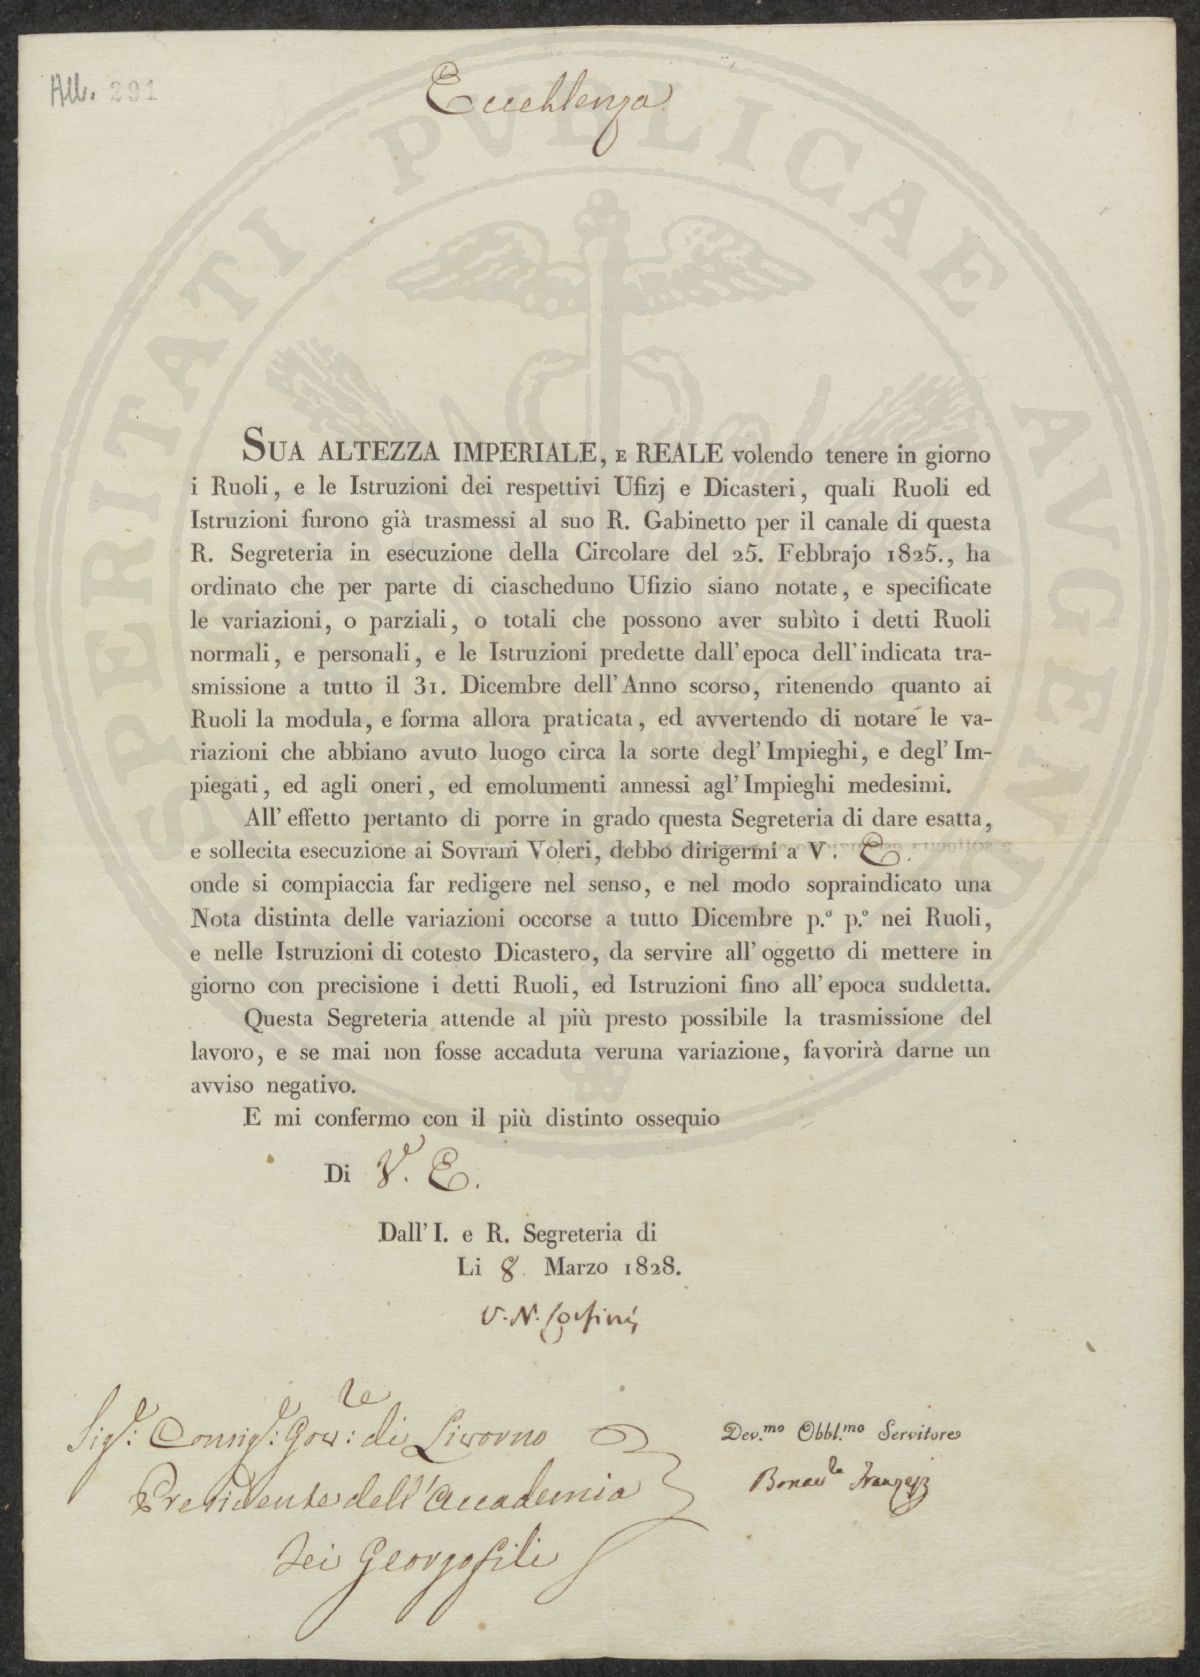 All. 291
Eccellenza
PROSPERITATI PVBLICAE AVGENDAE
SUA ALTEZZA IMPERIALE, E REALE volendo tenere in giorno
i Ruoli, e le Istruzioni dei respettivi Ufizj e Dicasteri, quali Ruoli ed
Istruzioni furono già trasmessi al suo R. Gabinetto per il canale di questa
R. Segreteria in esecuzione della Circolare del 25. Febbrajo 1825., ha
ordinato che per parte di ciascheduno Ufizio siano notate, e specificate
le variazioni, o parziali, o totali che possono aver subìto i detti Ruoli
normali, e personali, e le Istruzioni predette dall'epoca dell'indicata tra-
smissione a tutto il 31. Dicembre dell'Anno scorso, ritenendo quanto ai
Ruoli la modula, e forma allora praticata, ed avvertendo di notare le va-
riazioni che abbiano avuto luogo circa la sorte degl'Impieghi, e degl'Im-
piegati, ed agli oneri, ed emolumenti annessi agl'Impieghi medesimi.
All'effetto pertanto di porre in grado questa Segreteria di dare esatta,
e sollecita esecuzione ai Sovrani Voleri, debbo dirigermi a V. E.
onde si compiaccia far redigere nel senso, e nel modo sopraindicato una
Nota distinta delle variazioni occorse a tutto Dicembre p.º p.º nei Ruoli,
e nelle Istruzioni di cotesto Dicastero, da servire all'oggetto di mettere in
giorno con precisione i detti Ruoli, ed Istruzioni fino all'epoca suddetta.
Questa Segreteria attende al più presto possibile la trasmissione del
lavoro, e se mai non fosse accaduta veruna variazione, favorirà darne un
avviso negativo.
E mi confermo con il più distinto ossequio
Di V. E.
Dall'I. e R. Segreteria di
Li 8. Marzo 1828.
V. N. Corsini
Sig.r: Consig.r: Gov.le: di Livorno
Presidente dell'Accademia
dei Georgofili
Dev.mo Obbl.mo Servitore